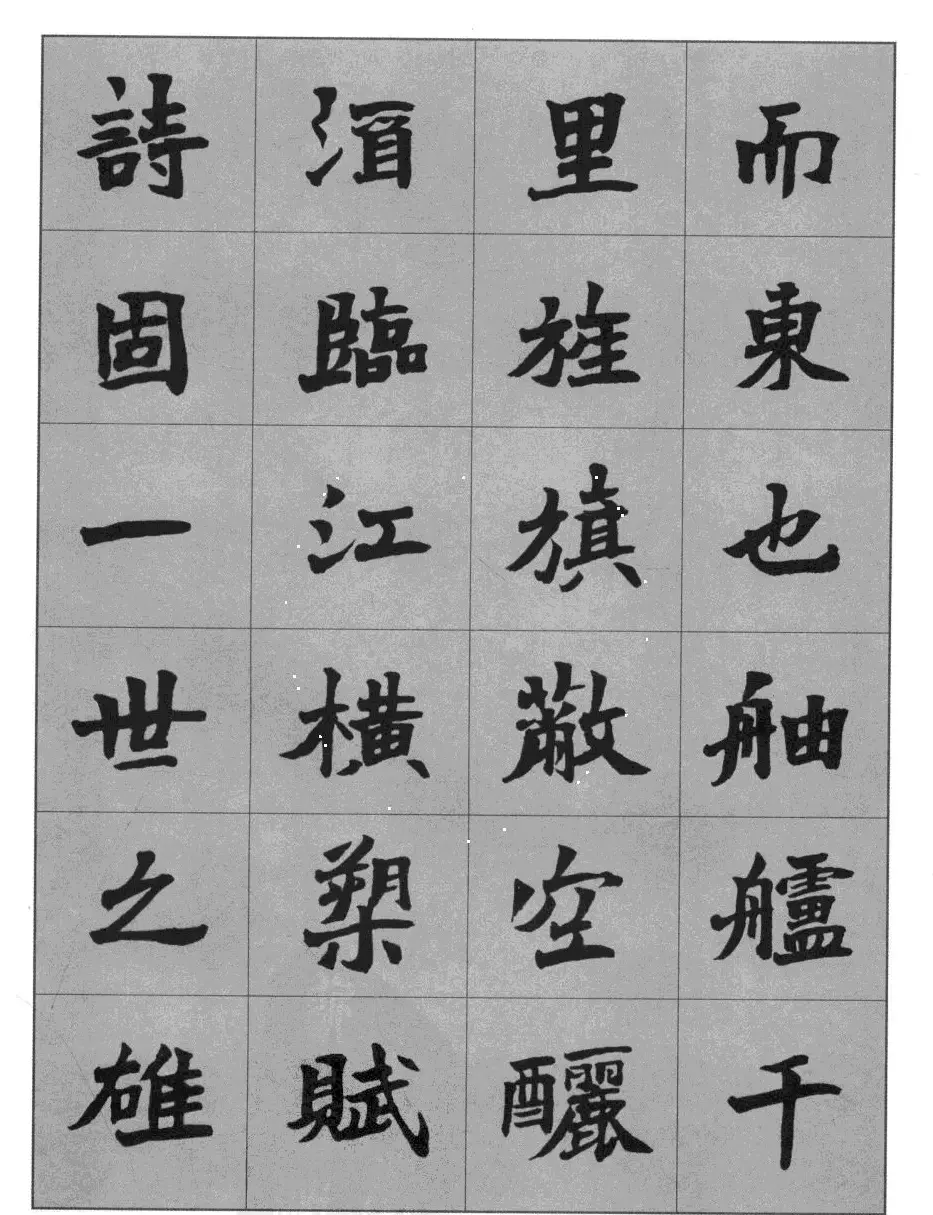 而東也舳艫千
里旌旗蔽空釃
酒臨江橫槊賦
詩固一世之雄